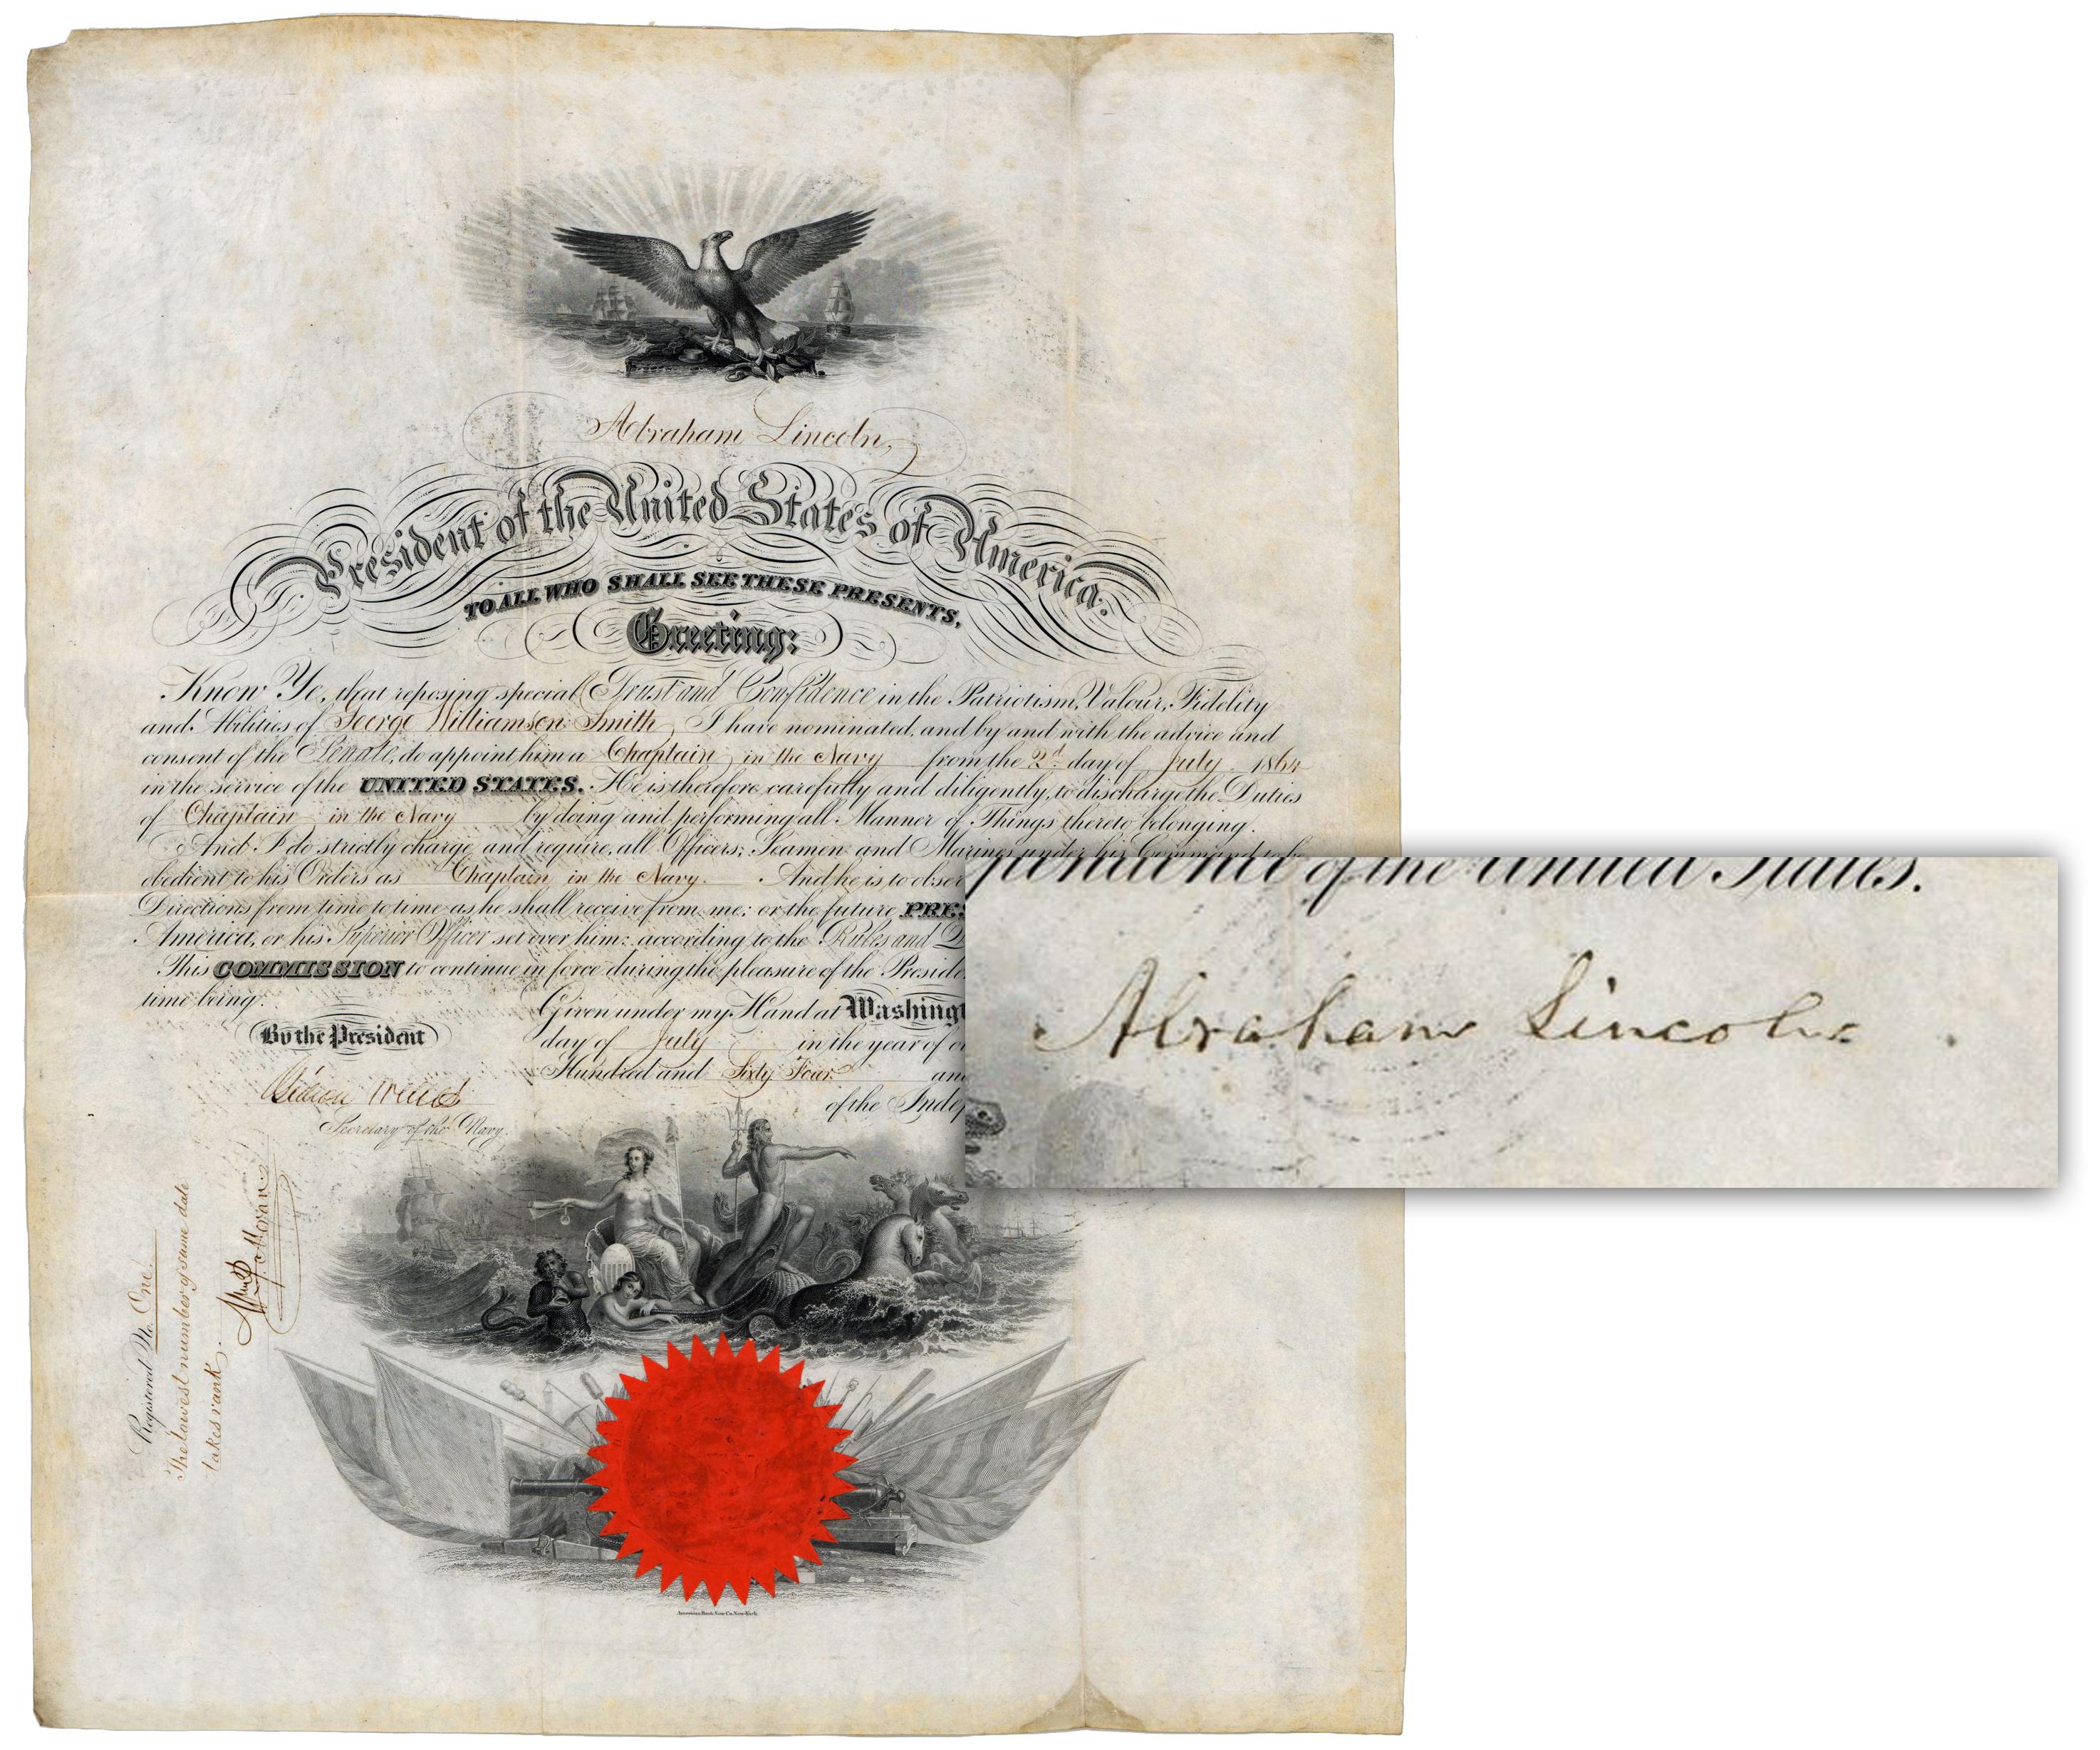 Abraham Lincoln,
President of the United States of America.
TO ALL WHO SHALL SEE THESE PRESENTS,
Greeting:
Know Ye, that reposing special Trust and Confidence in the Patriotism, Valour, Fidelity
and Abilities of George Williamson Smith, I have nominated, and by and with the advice and
consent of the Senate, do appoint him a Chaplain in the Navy from the 2d day of July 1864
in the service of the UNITED STATES. He is therefore carefully and diligently, to discharge the Duties
of Chaplain in the Navy by doing and performing all Manner of Things thereto belonging.
And I do strictly charge and require, all Officers, Seamen and Marines under his Command to be
obedient to his Orders as Chaplain in the Navy. And he is to obser
Directions from time to time as he shall receive from me; or the future PRES
America, or his Superior Officer set over him; according to the Rules and D
This COMMISSION to continue in force during the pleasure of the Preside
time being.
Given under my Hand at Washingt
By the President
day of July in the year of o
Hundred and Sixty Four and
of the Indep
Gideon Welles
Secretary of the Navy.
pendence of the United States.
Abraham Lincoln.
Registered No. One.
The lowest number of same date
takes rank.
Moran
American Bank Note Co. New-York